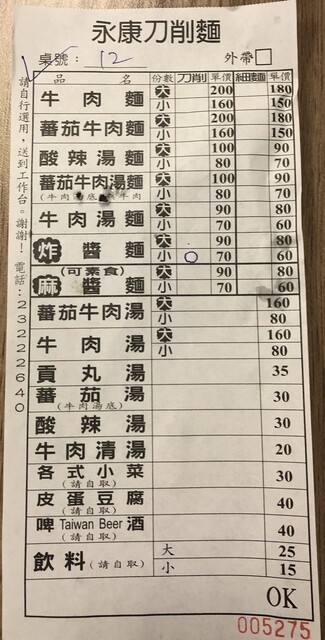 永康刀削麵
桌號: 12 外帶
品名 份數 刀削 單價 細麵 單價
牛肉麵 大 200 180
小 160 150
蕃茄牛肉麵 大 200 180
小 160 150
酸辣湯麵 大 100 90
小 80 70
蕃茄牛肉湯麵 大 100 90
小 80 70
牛肉湯麵 大 90 80
小 70 60
炸醬麵 大 90 80
小 70 60
(可素食)
麻醬麵 大 90 80
小 70 60
蕃茄牛肉湯 大 160
小 80
牛肉湯 大 160
小 80
貢丸湯 35
蕃茄湯 30
(牛肉湯底)
酸辣湯 30
牛肉清湯 20
各式小菜 30
(請自取)
皮蛋豆腐 40
(請自取)
啤 Taiwan Beer 酒 40
(請自取)
飲料(請自取) 大 25
小 15
OK
005275
請自行選用,送到工作台。謝謝! 電話:23222640